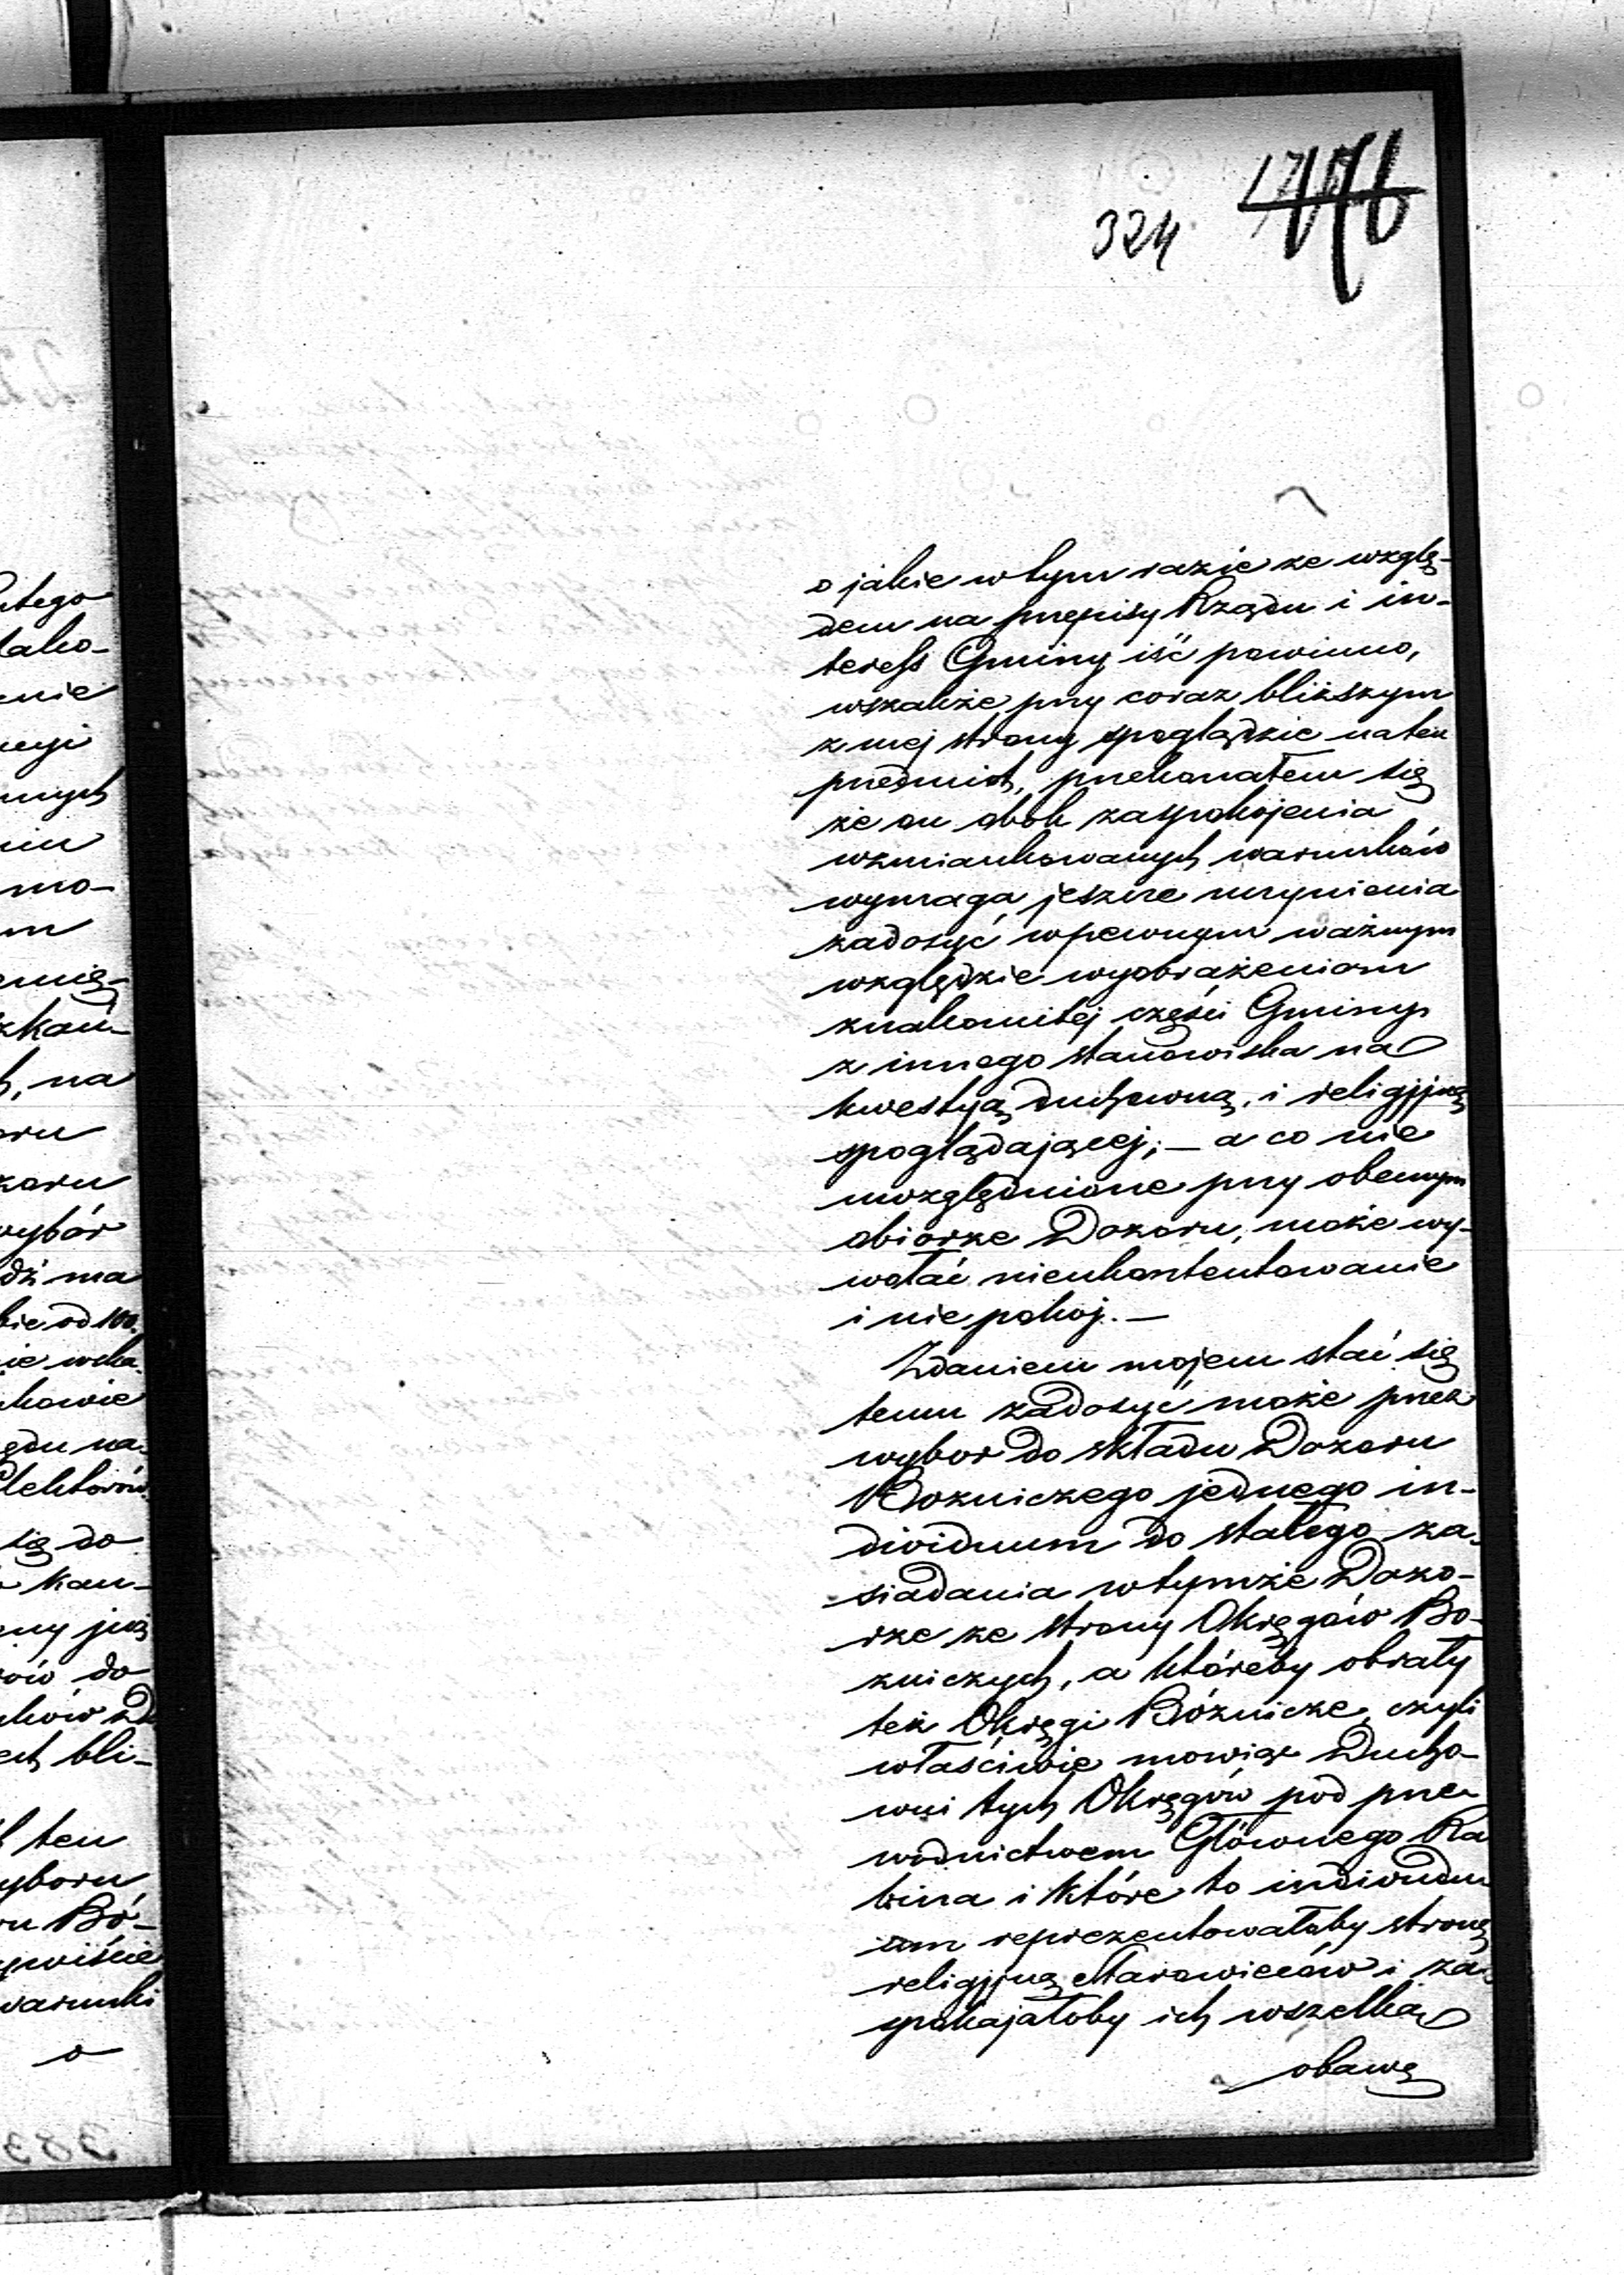 324
o jakie w tym razie ze wzglę-
dem na przepisy Rządu i in-
teress Gminy iść powinno,
wszakże przy coraz bliższym
z mej strony spoglądzie na ten
przedmiot, przekonałem się
że on obok zaspokojenia
wzmiankowanych warunków
wymaga jeszcze uczynienia
zadosyć w pewnym ważnym
względzie wyobrażeniom
znakomitéj części Gminy
z innego stanowiska na
kwestyą duchowną, i religijną
spoglądającej; — a co nie
uwzględnione przy obecnym
obiorze Dozoru, może wy-
wołać nieukontentowanie
i nie pokoj. —
Zdaniem mojem stać się
temu zadosyć może przez
wybor do składu Dozoru
Bozniczego jednego in-
dividuum do stałego za-
siadania w tymże Dozo-
rze ze strony Okręgów Bo-
zniczych, a któreby obrały
też Okręgi Bóżnicze, czyli
właściwie mowiąc Ducho-
wni tych Okręgów pod prze-
wodnictwem Głównego Ra
bina i które to individu
um reprezentowałoby stronę
religijną Starowierców i za-
spokajałoby ich wszelką
obawę
utego
tako-
nie
nych
niu
mo-
m
zkań-
, na
oru
zoru
wybór
dź ma
bie od 100.
kowie
ędu na-
Elektorów
się do
kan-
ów do
bli-
ten
yboru
ru Bó-
warunki
o